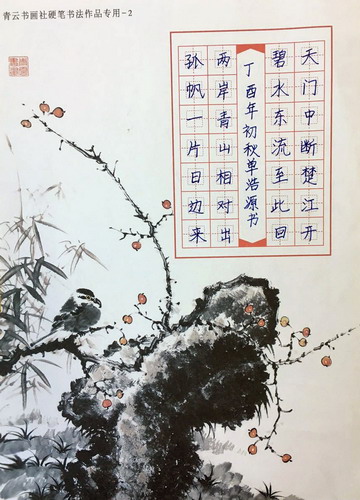 青云书画社硬笔书法作品专用-2
天门中断楚江开
碧水东流至此回
丁酉年初秋单浩源书
两岸青山相对出
孤帆一片日边来